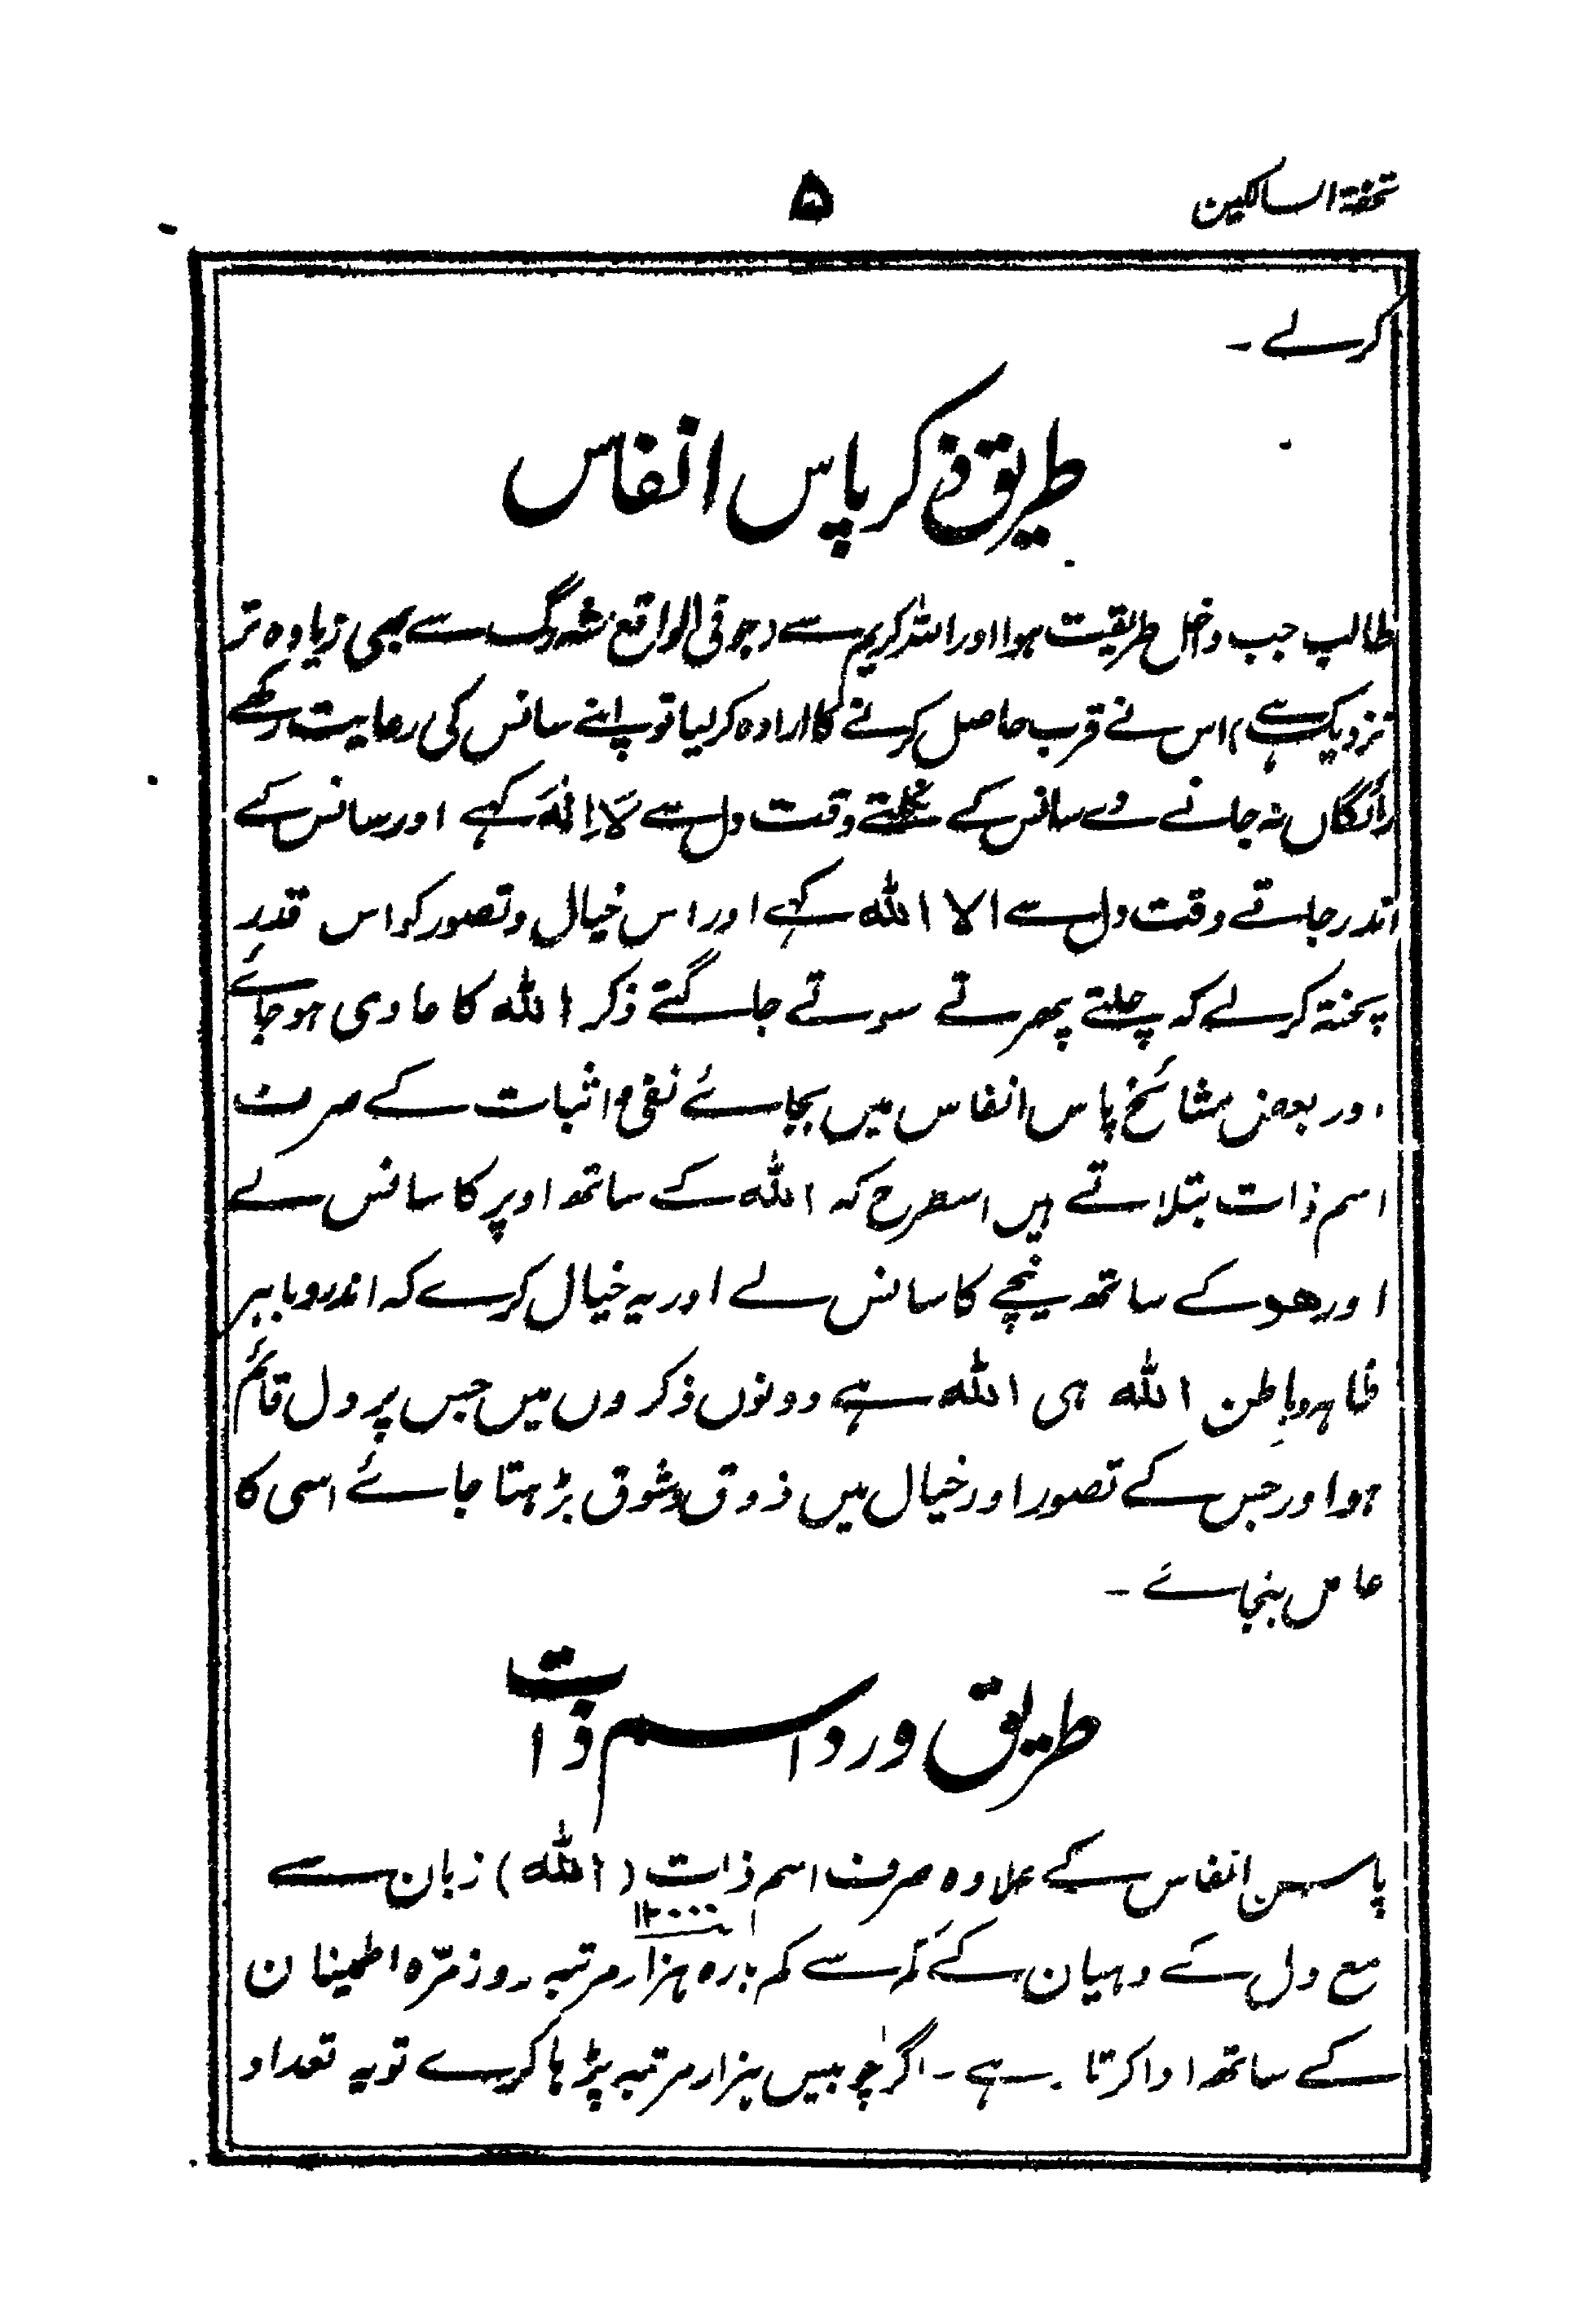 تحفۃ السالکین
۵
کرلے ۔
طریق ذکر پاس انفاس
طالب جب داخل طریقت ہوا اور اللہ کریم سے (جو فی الواقع شہ رگ سے بھی زیادہ تر
نزدیک ہے) اس نے قرب حاصل کرنے کا ارادہ کرلیا تو اپنے سانس کی رعایت رکھے
رائگاں نہ جانے دے سانس کے نکلتے وقت دل سے لَا اِلٰہَ کہے اور سانس کے
اندر جاتے وقت دل سے الا اللہ کہے اور اس خیال و تصور کو اس قدر
پختہ کرلے کہ چلتے پھرتے سوتے جاگتے ذکر اللہ کا عادی ہوجائے
اور بعض مشائخ پاس انفاس میں بجائے نفی و اثبات کے صرف
اسم ذات بتلاتے ہیں اسطرح کہ اللہ کے ساتھ اوپر کا سانس لے
اور ھو کے ساتھ نیچے کا سانس لے اور یہ خیال کرے کہ اندر و باہر
ظاہر و باطن اللہ ہی اللہ ہے دونوں ذکروں میں جس پر دل قائم
ہو اور جس کے تصور اور خیال میں ذوق و شوق بڑہتا جائے اسی کا
عامل بنجائے ۔
طریق ورد اسم ذات
پاس انفاس کے علاوہ صرف اسم ذات (اللہ) زبان سے
۱۲۰۰۰
مع دل کے دہیان کے کم سے کم بارہ ہزار مرتبہ روزمرّہ اطمینان
کے ساتھ ادا کرتا رہے ۔ اگر چوبیس ہزار مرتبہ پڑہا کرے تو یہ تعداد